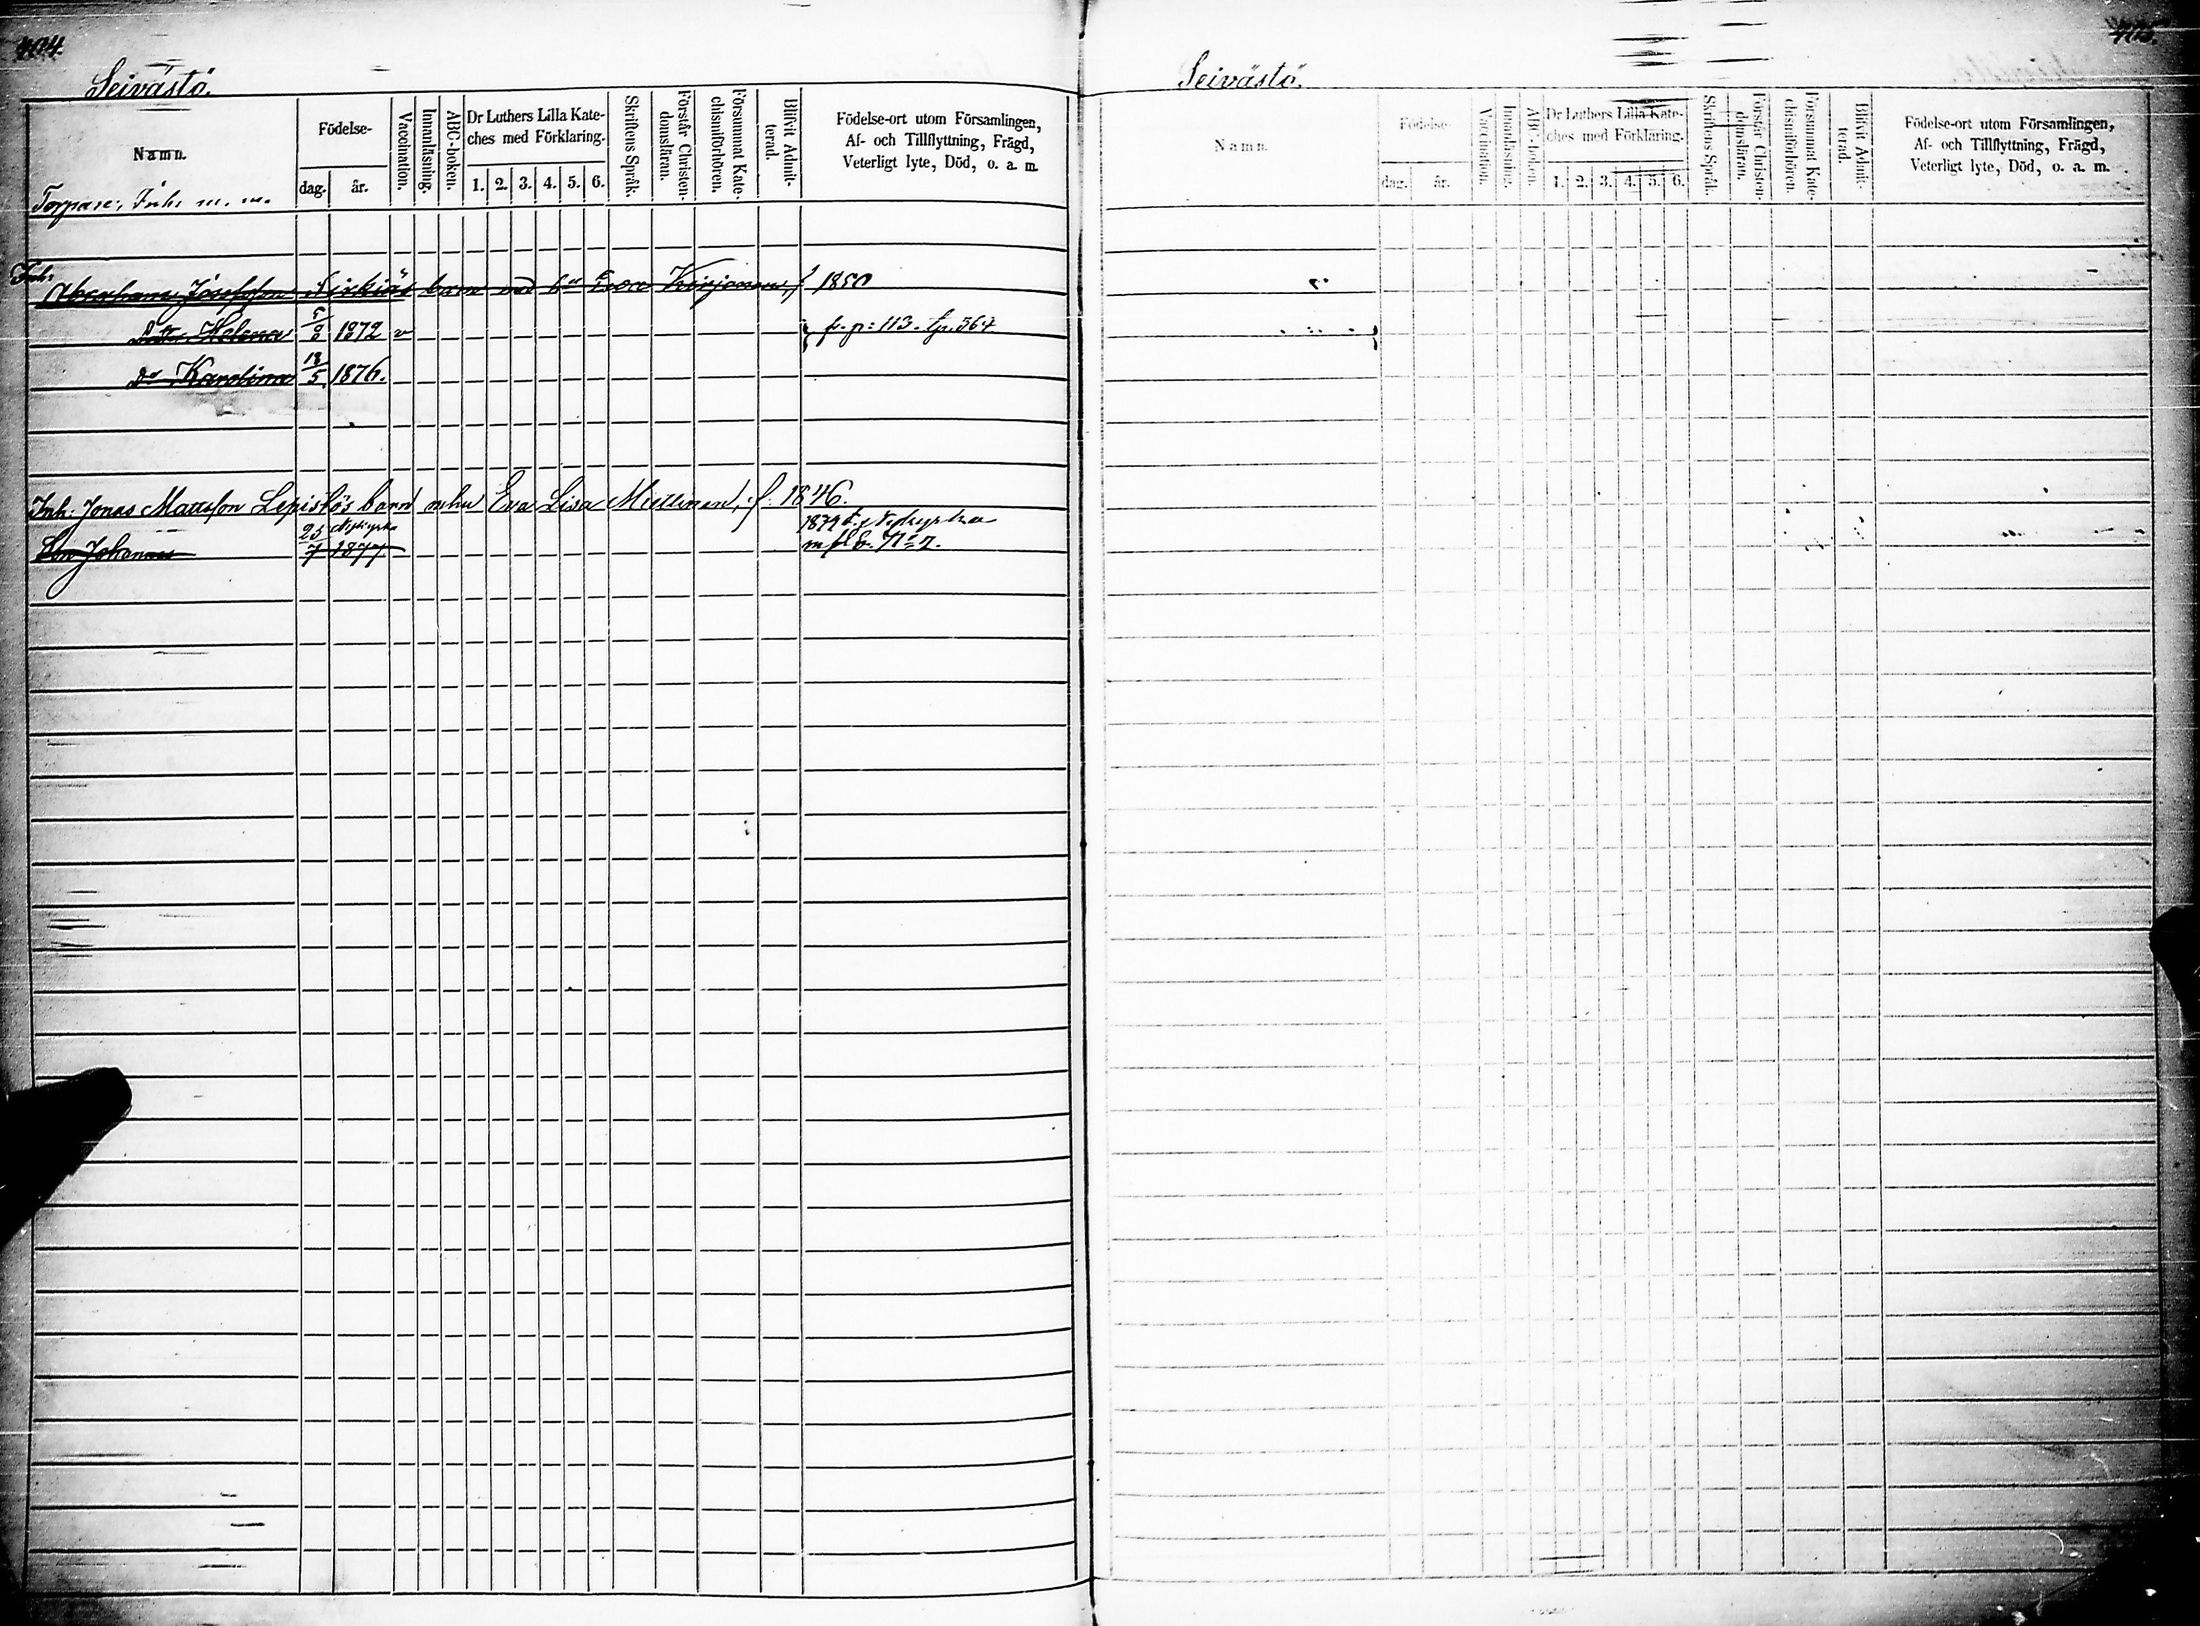 404.
Seivästö.
Namn.
Födelse-
dag. år.
Vaccination.
Innanläsning.
ABC-boken.
Dr Luthers Lilla Kate-
ches med Förklaring.
1. 2. 3. 4. 5. 6.
Skriftens Språk.
Förstår Christen-
domsläran.
Försummat Kate-
chismiförhören.
Blifvit Admit-
terad.
Födelse-ort utom Församlingen,
Af- och Tillflyttning, Frägd,
Veterligt lyte, Död, o. a. m.
Torpare, Inh. m. m.
Inh.
Abraham Josefsson Sirkiäs barn med Kirjonen, f 1850
Dotter Helena 1872 v
fr. p: 113. 564
Do Karolina 18/5 1876.
Inh: Jonas Mattsson Lepistös barn mhu Eva Lisa Miettinen, f. 1846.
Son Johannes 25/7 Nykyrka 1877
1879 t. Nykyrka
m fl b. No 7.
Seivästö.
Namn.
Födelse-
dag. år.
Vaccination.
Innanläsning.
ABC-boken.
Dr Luthers Lilla Kate-
ches med Förklaring.
1. 2. 3. 4. 5. 6.
Skriftens Språk.
Förstår Christen-
domsläran.
Försummat Kate-
chismiförhören.
Blifvit Admit-
terad.
Födelse-ort utom Församlingen,
Af- och Tillflyttning, Frägd,
Veterligt lyte, Död, o. a. m.